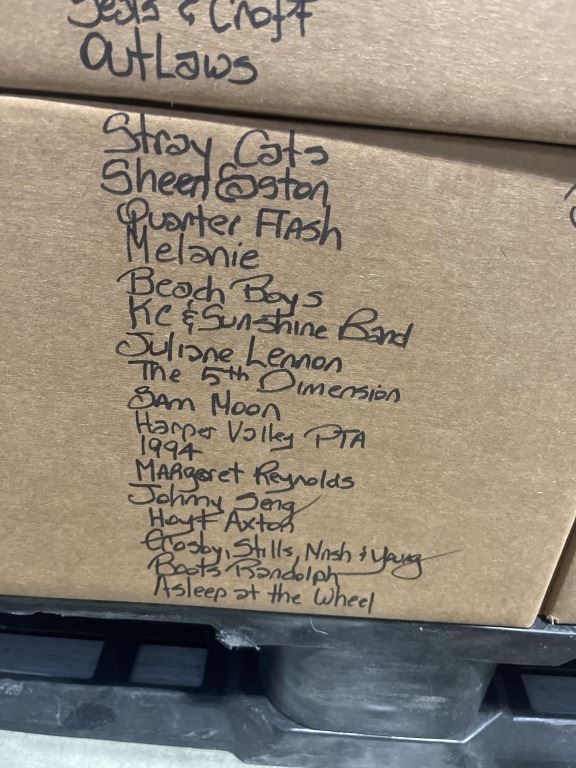 Seals & Croft
Outlaws
Stray Cats
Sheen Easton
Quarter Flash
Melanie
Beach Boys
KC & Sunshine Band
Juliane Lennon
The 5th Dimension
Sam Moon
Harper Valley PTA
1994
Margaret Reynolds
Johnny Seng
Hoyt Axton
Crosby, Stills, Nash & Young
Boots Randolph
Asleep at the Wheel